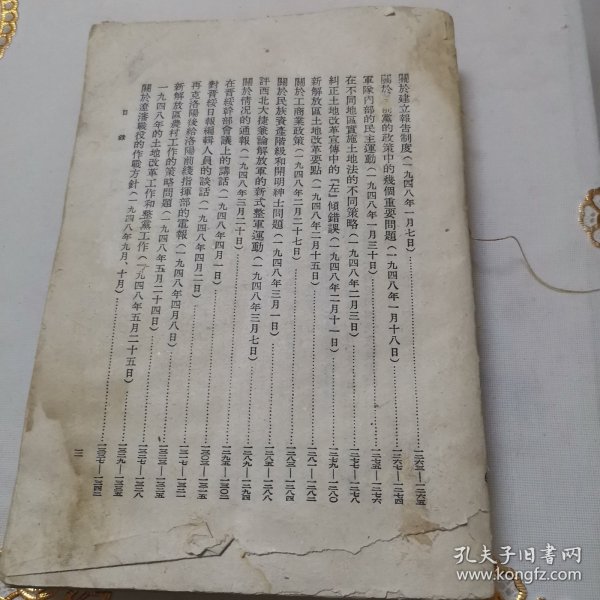 關於建立報告制度（一九四八年一月七日）……一二六三—一二六五
關於 黨的政策中的幾個重要問題（一九四八年一月十八日）……一二六七—一二七四
軍隊內部的民主運動（一九四八年一月三十日）……一二七五—一二七六
在不同地區實施土地法的不同策略（一九四八年二月三日）……一二七七—一二七八
糾正土地改革宣傳中的『左』傾錯誤（一九四八年二月十一日）……一二七九—一二八〇
新解放區土地改革要點（一九四八年二月十五日）……一二八一—一二八二
關於工商業政策（一九四八年二月二十七日）……一二八三—一二八四
關於民族資產階級和開明紳士問題（一九四八年三月一日）……一二八五—一二八八
評西北大捷兼論解放軍的新式整軍運動（一九四八年三月七日）……一二八九—一二九四
關於情況的通報（一九四八年三月二十日）……一二九五—一三〇二
在晉綏幹部會議上的講話（一九四八年四月一日）……一三〇三—一三一五
對晉綏日報編輯人員的談話（一九四八年四月二日）……一三一七—一三二一
再克洛陽後給洛陽前線指揮部的電報（一九四八年四月八日）……
新解放區農村工作的策略問題（一九四八年五月二十四日）……一三二七—一三二八
一九四八年的土地改革工作和整黨工作（一九四八年五月二十五日）……一三二九—一三三五
關於遼瀋戰役的作戰方針（一九四八年九月、十月）……一三三七—一三四二
目錄
三
孔夫子旧书网
www.kongfz.com